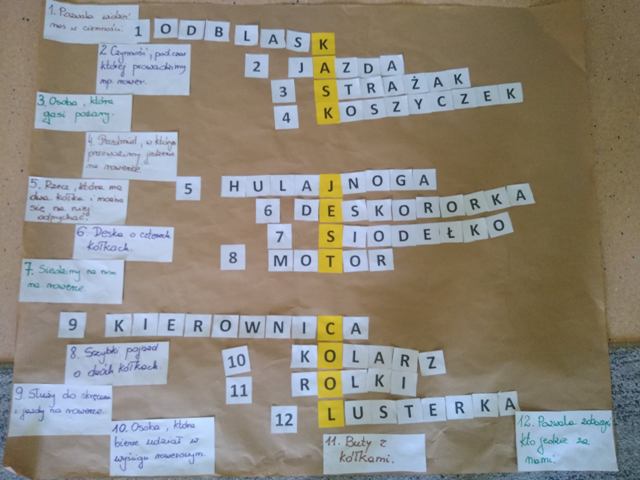 1. Pozwala widzieć
nas w ciemności.
1 ODBLASK
2. Czynność, podczas
której prowadzimy
np. rower.
2 JAZDA
3 STRAŻAK
3. Osoba, która
gasi pożary.
4 KOSZYCZEK
4. Przedmiot, w którym
przewozimy jedzenie
na rowerze.
5. Rzecz, która ma
dwa kółka i można
się na niej
odpychać.
5 HULAJNOGA
6 DESKORORKA
6. Deska o czterech
kółkach.
7 SIODEŁKO
8 MOTOR
7. Siedzimy na nim
na rowerze.
9 KIEROWNICA
8. Szybki pojazd
o dwóch kółkach.
10 KOLARZ
11 ROLKI
9. Służy do skręcania
i jazdy na rowerze.
12 LUSTERKA
10. Osoba, która
bierze udział w
wyścigu rowerowym.
11. Buty z
kółkami.
12. Pozwala zobaczyć
kto jedzie za
nami.